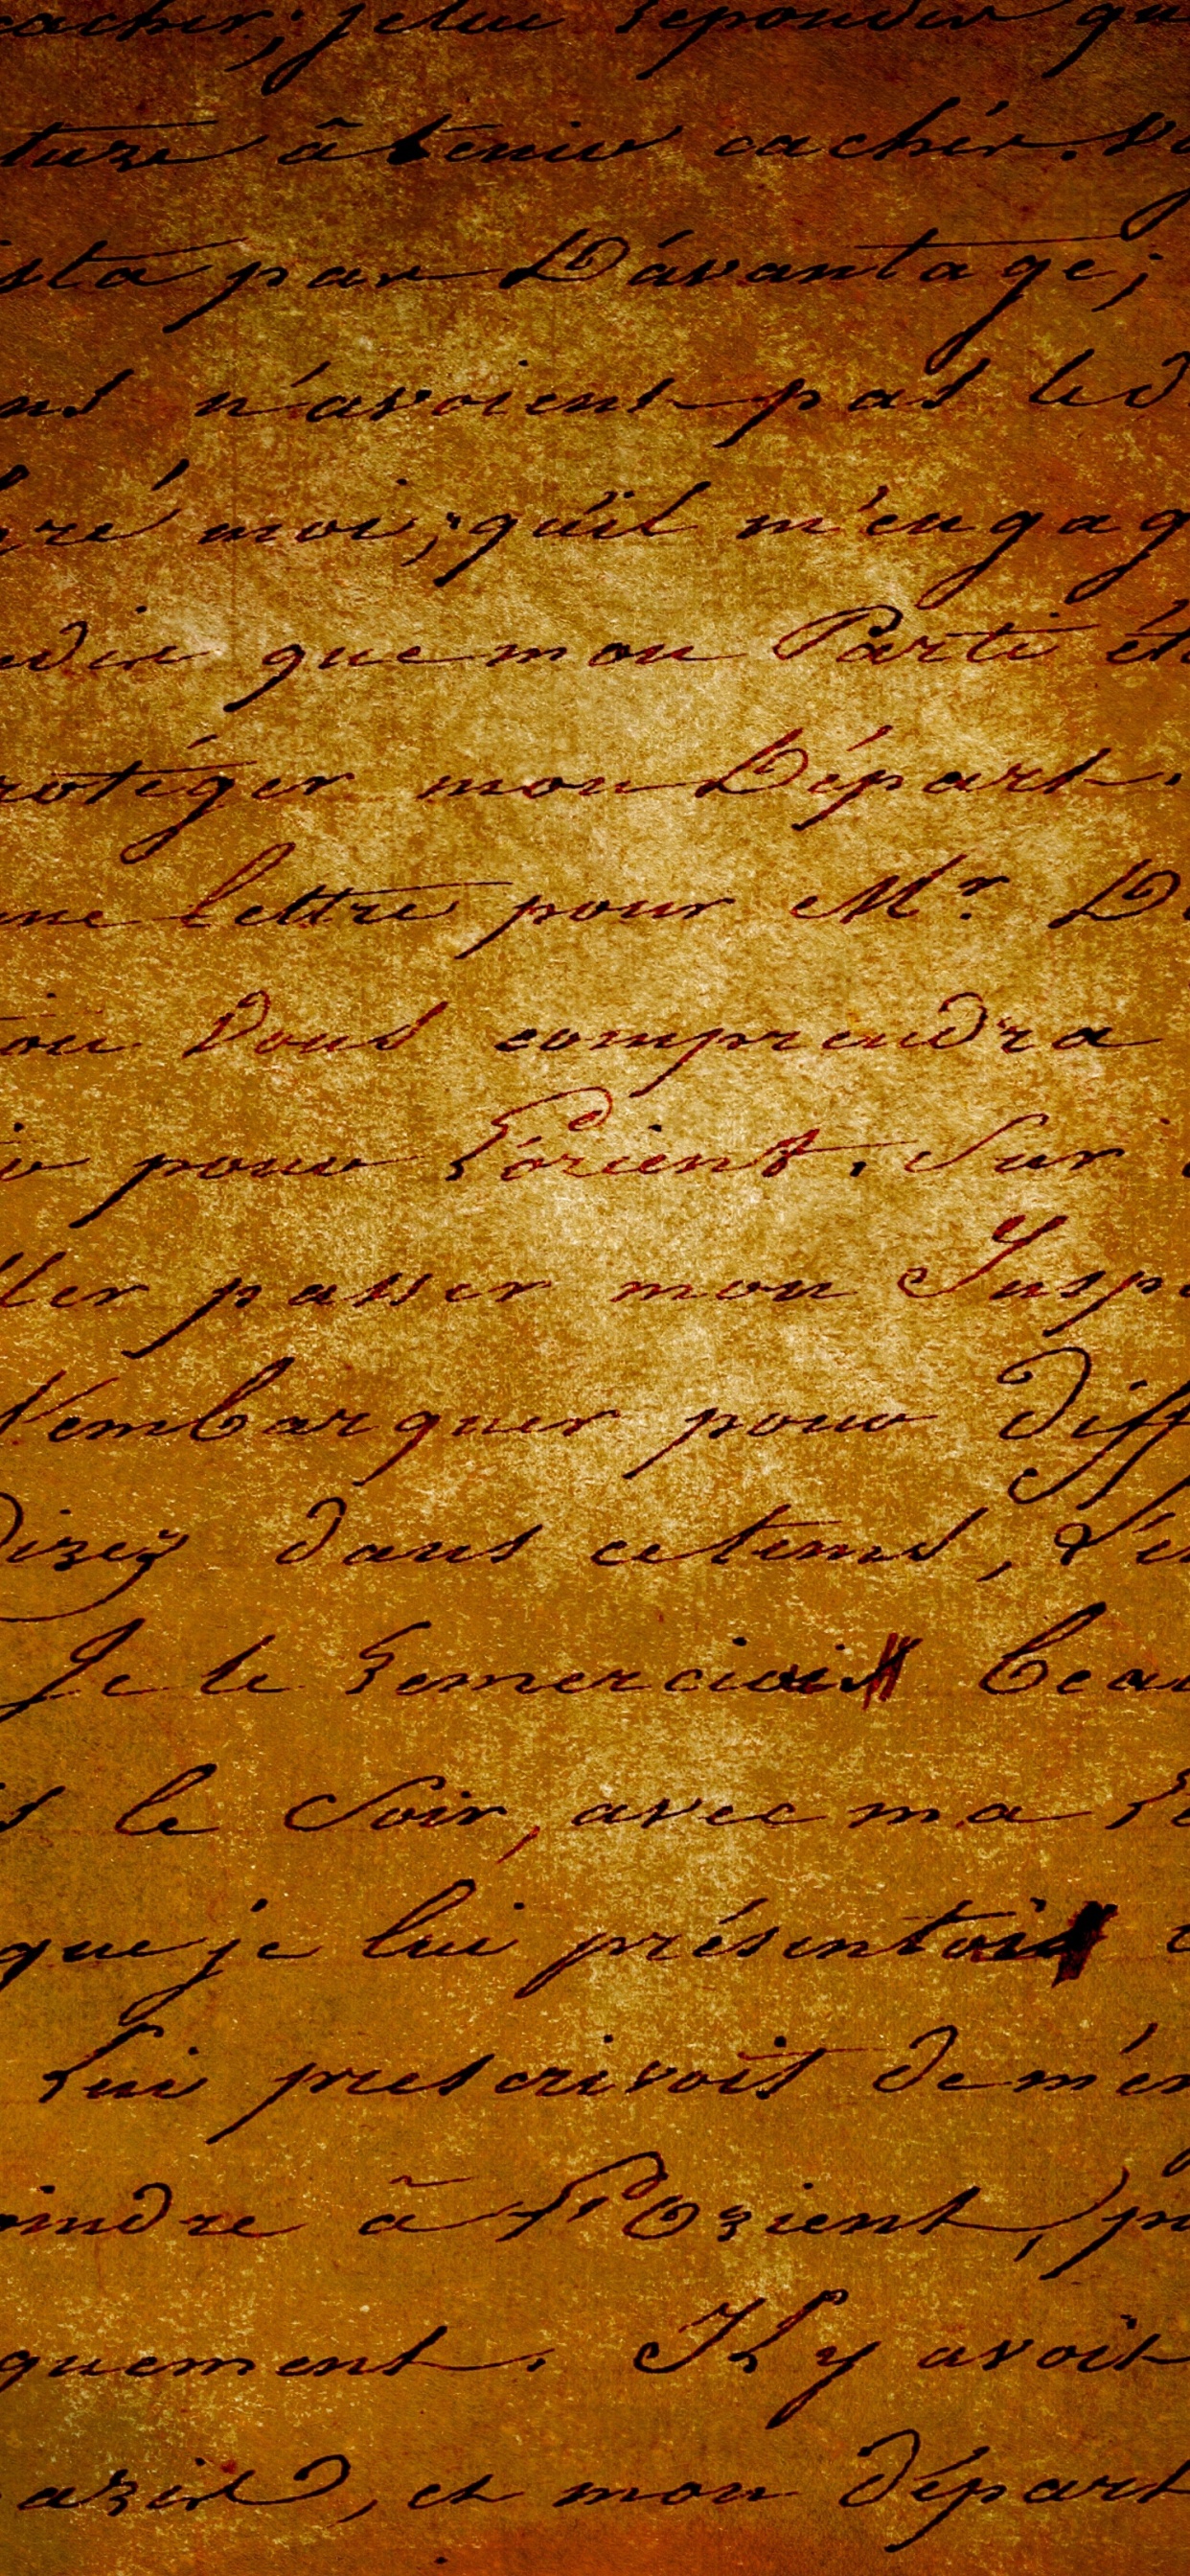 cacher; je lui repondis qu
ture à tenir cacher. V
ista par Dávantage;
ns n'avoient pas led
gré moi; qu'il m'engag
edir que mon Parti ét
rotéger mon Départ.
une lettre pour Mr. D
ou Vous comprendra
pour L'orient. Sur
ller passer mon Insp
d'embarquer pour diff
direz dans cetems,
Je le remerciois beau
s le Soir, avec ma
que je lui présentois
Lui prescrivoit de mém
oindre à L'Orient, p
quement. Il y avoit
azird, et mon départ